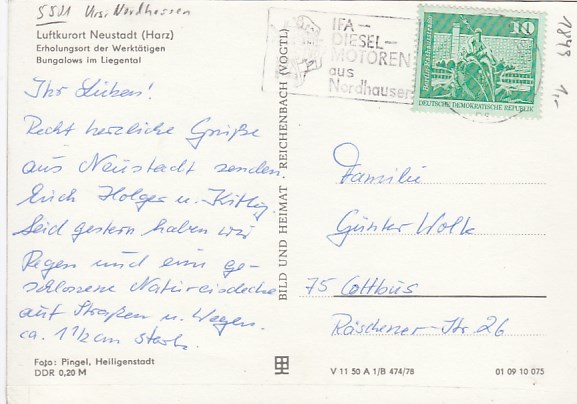 5501 Nordhausen
Luftkurort Neustadt (Harz)
Erholungsort der Werktätigen
Bungalows im Liegental
Ihr Lieben!
Recht herzliche Grüße
aus Neustadt senden
Euch Holger u.
Seid gestern haben wir
Regen und eine ge-
schlossene Natureisdecke
auf Straßen u. Wegen.
ca. 1½ cm stark.
Foto: Pingel, Heiligenstadt
DDR 0,20 M
BILD UND HEIMAT REICHENBACH (VOGTL)
IFA-
DIESEL-
MOTOREN
aus
Nordhausen
10
DEUTSCHE DEMOKRATISCHE REPUBLIK
1849
1,-
Familie
Günter Wolk
75 Cottbus
Räschener-Str. 26
V 11 50 A 1/B 474/78
01 09 10 075